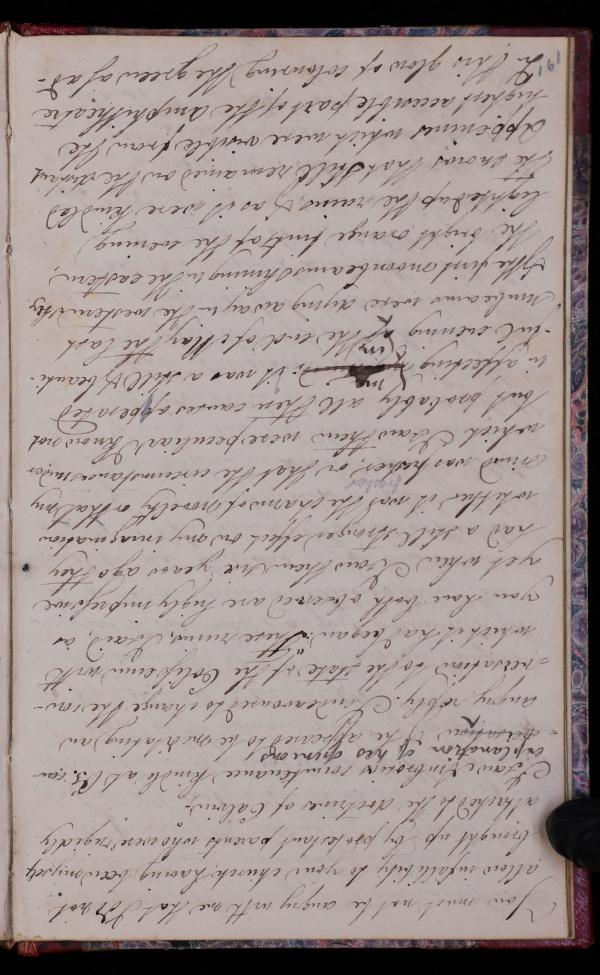 You must not be angry with me that I do not
allow infallibility to your church, having been myself
brought up by protestant parents who were rigidly
attached to the doctrines of Calvin.-
I saw Ambrosio's countenance kindle at
explanation of his opinions
& he appeared to be meditating an
angry reply. I endeavoured to change the con-
=versation to the state of the Colosæum with
which it had began. "These ruins, I said, as
you have both observed are highly impressive
yet when I saw them six years ago they
had a still stronger effect on my imagination
whether it was the charm of novelty or that my
mind was fresher or that the circumstances under
which I saw them were peculiar I know not
but probably all these causes operated
in affecting my mind; it was a still & beauti-
-ful evening in the end of May the last
sunbeams were dying away in the western sky
& the first moonbeams shining in the eastern;
the bright orange tints of the evening
lighted up the ruins, & as it were kindled
the snows that still remained on the distant
Appenines which were visible from the
highest accessible part of the amphitheatre
In this glow of colouring the green of ad-